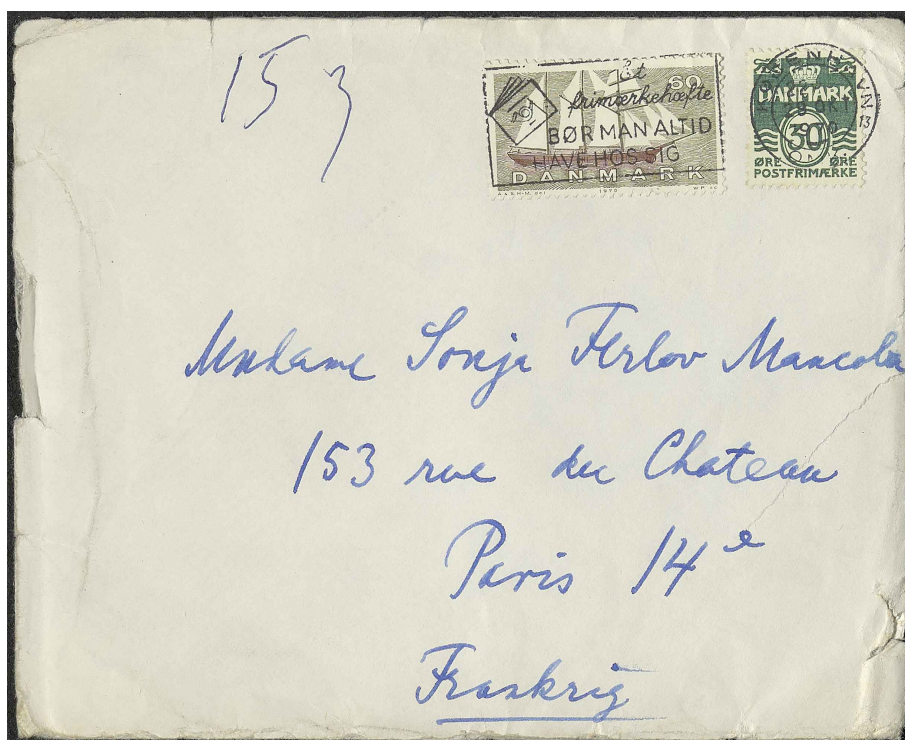 153
Et
frimærkehæfte
BØR MAN ALTID
HAVE HOS SIG
60
DANMARK
1970
DANMARK
30
ØRE ØRE
POSTFRIMÆRKE
13
Madame Sonja Ferlov Mancoba
153 rue du Chateau
Paris 14e
Frankrig